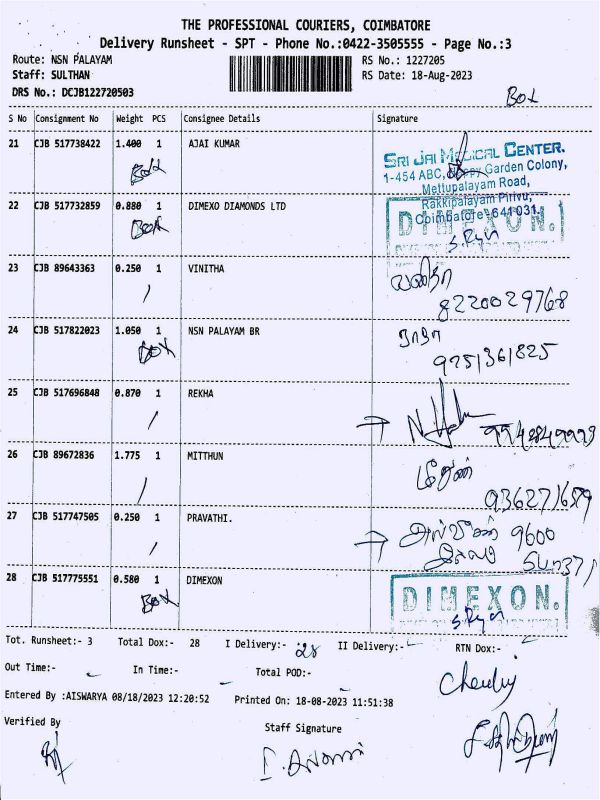 THE PROFESSIONAL COURIERS, COIMBATORE
Delivery Runsheet - SPT - Phone No.:0422-3505555 - Page No.:3
Route: NSN PALAYAM
RS No.: 1227205
Staff: SULTHAN
RS Date: 18-Aug-2023
DRS No.: DCJB122720503
Box
S No Consignment No Weight PCS Consignee Details Signature
21 CJB 517738422 1.400 1 AJAI KUMAR
Box
SRI JAI MEDICAL CENTER.
1-454 ABC, Garden Colony,
Mettupalayam Road,
Rakkipalayam Pirivu,
Coimbatore 641 031.
22 CJB 517732859 0.880 1 DIMEXO DIAMONDS LTD
Box
DIMEXON.
23 CJB 89643363 0.250 1 VINITHA
வனிதா
8220029768
24 CJB 517822023 1.050 1 NSN PALAYAM BR
Box
ராதா
9251361825
25 CJB 517696848 0.870 1 REKHA
26 CJB 89672836 1.775 1 MITTHUN
மிதுன்
9362771659
27 CJB 517747505 0.250 1 PRAVATHI.
9600
28 CJB 517775551 0.580 1 DIMEXON
Box
DIMEXON.
Tot. Runsheet:- 3 Total Dox:- 28 I Delivery:- 28 II Delivery:- RTN Dox:-
Out Time:- In Time:- Total POD:-
Entered By :AISWARYA 08/18/2023 12:20:52 Printed On: 18-08-2023 11:51:38
Verified By
Staff Signature